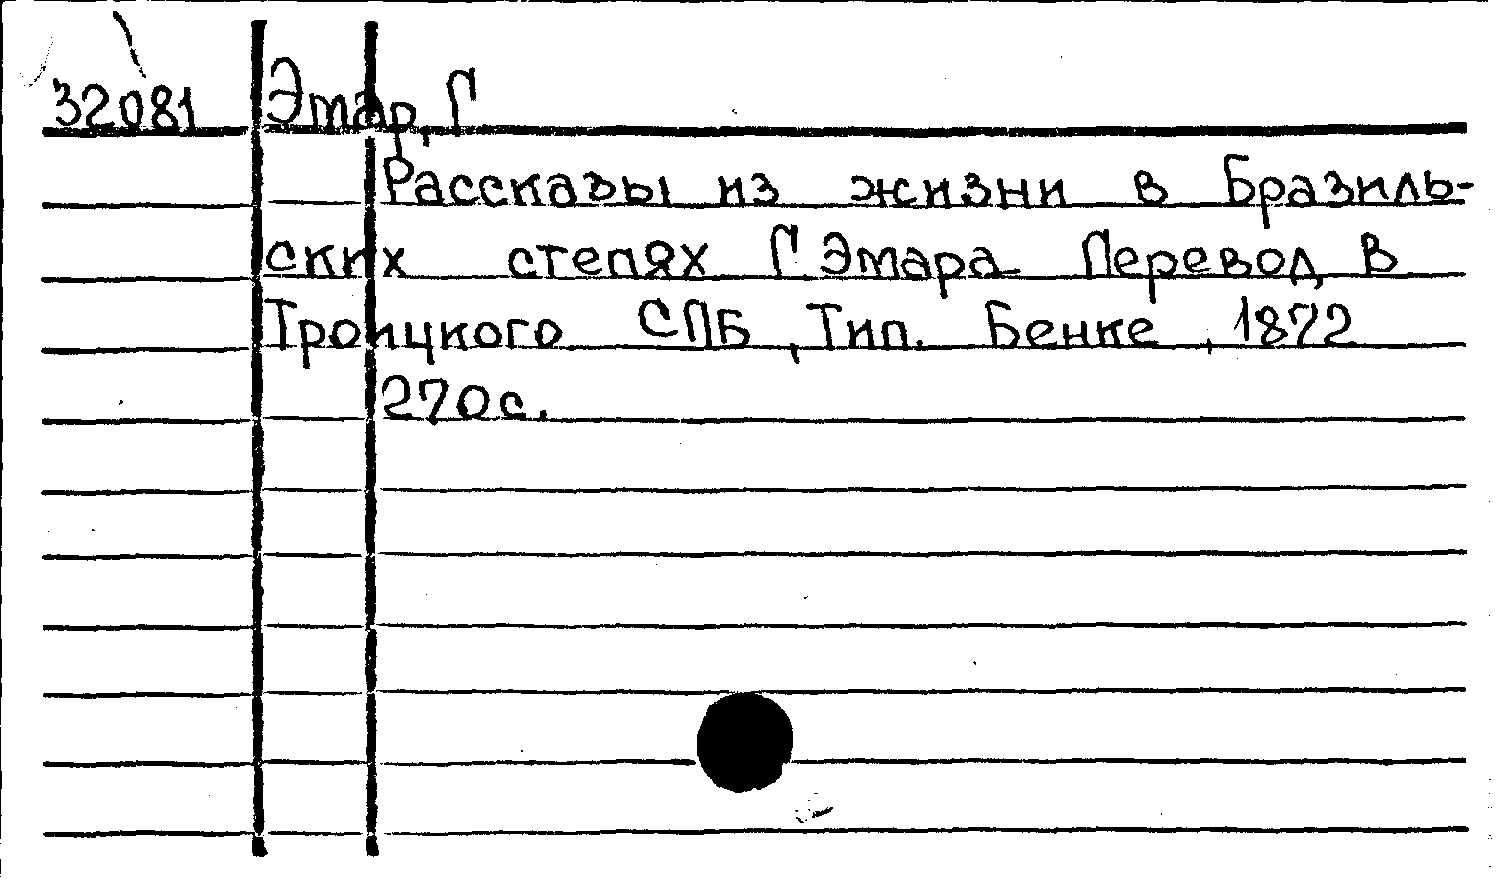 32081 Эмар, Г
Рассказы из жизни в Бразиль-
ских степях Г. Эмара Перевод В
Троицкого СПБ, Тип. Бенке, 1872
270с.